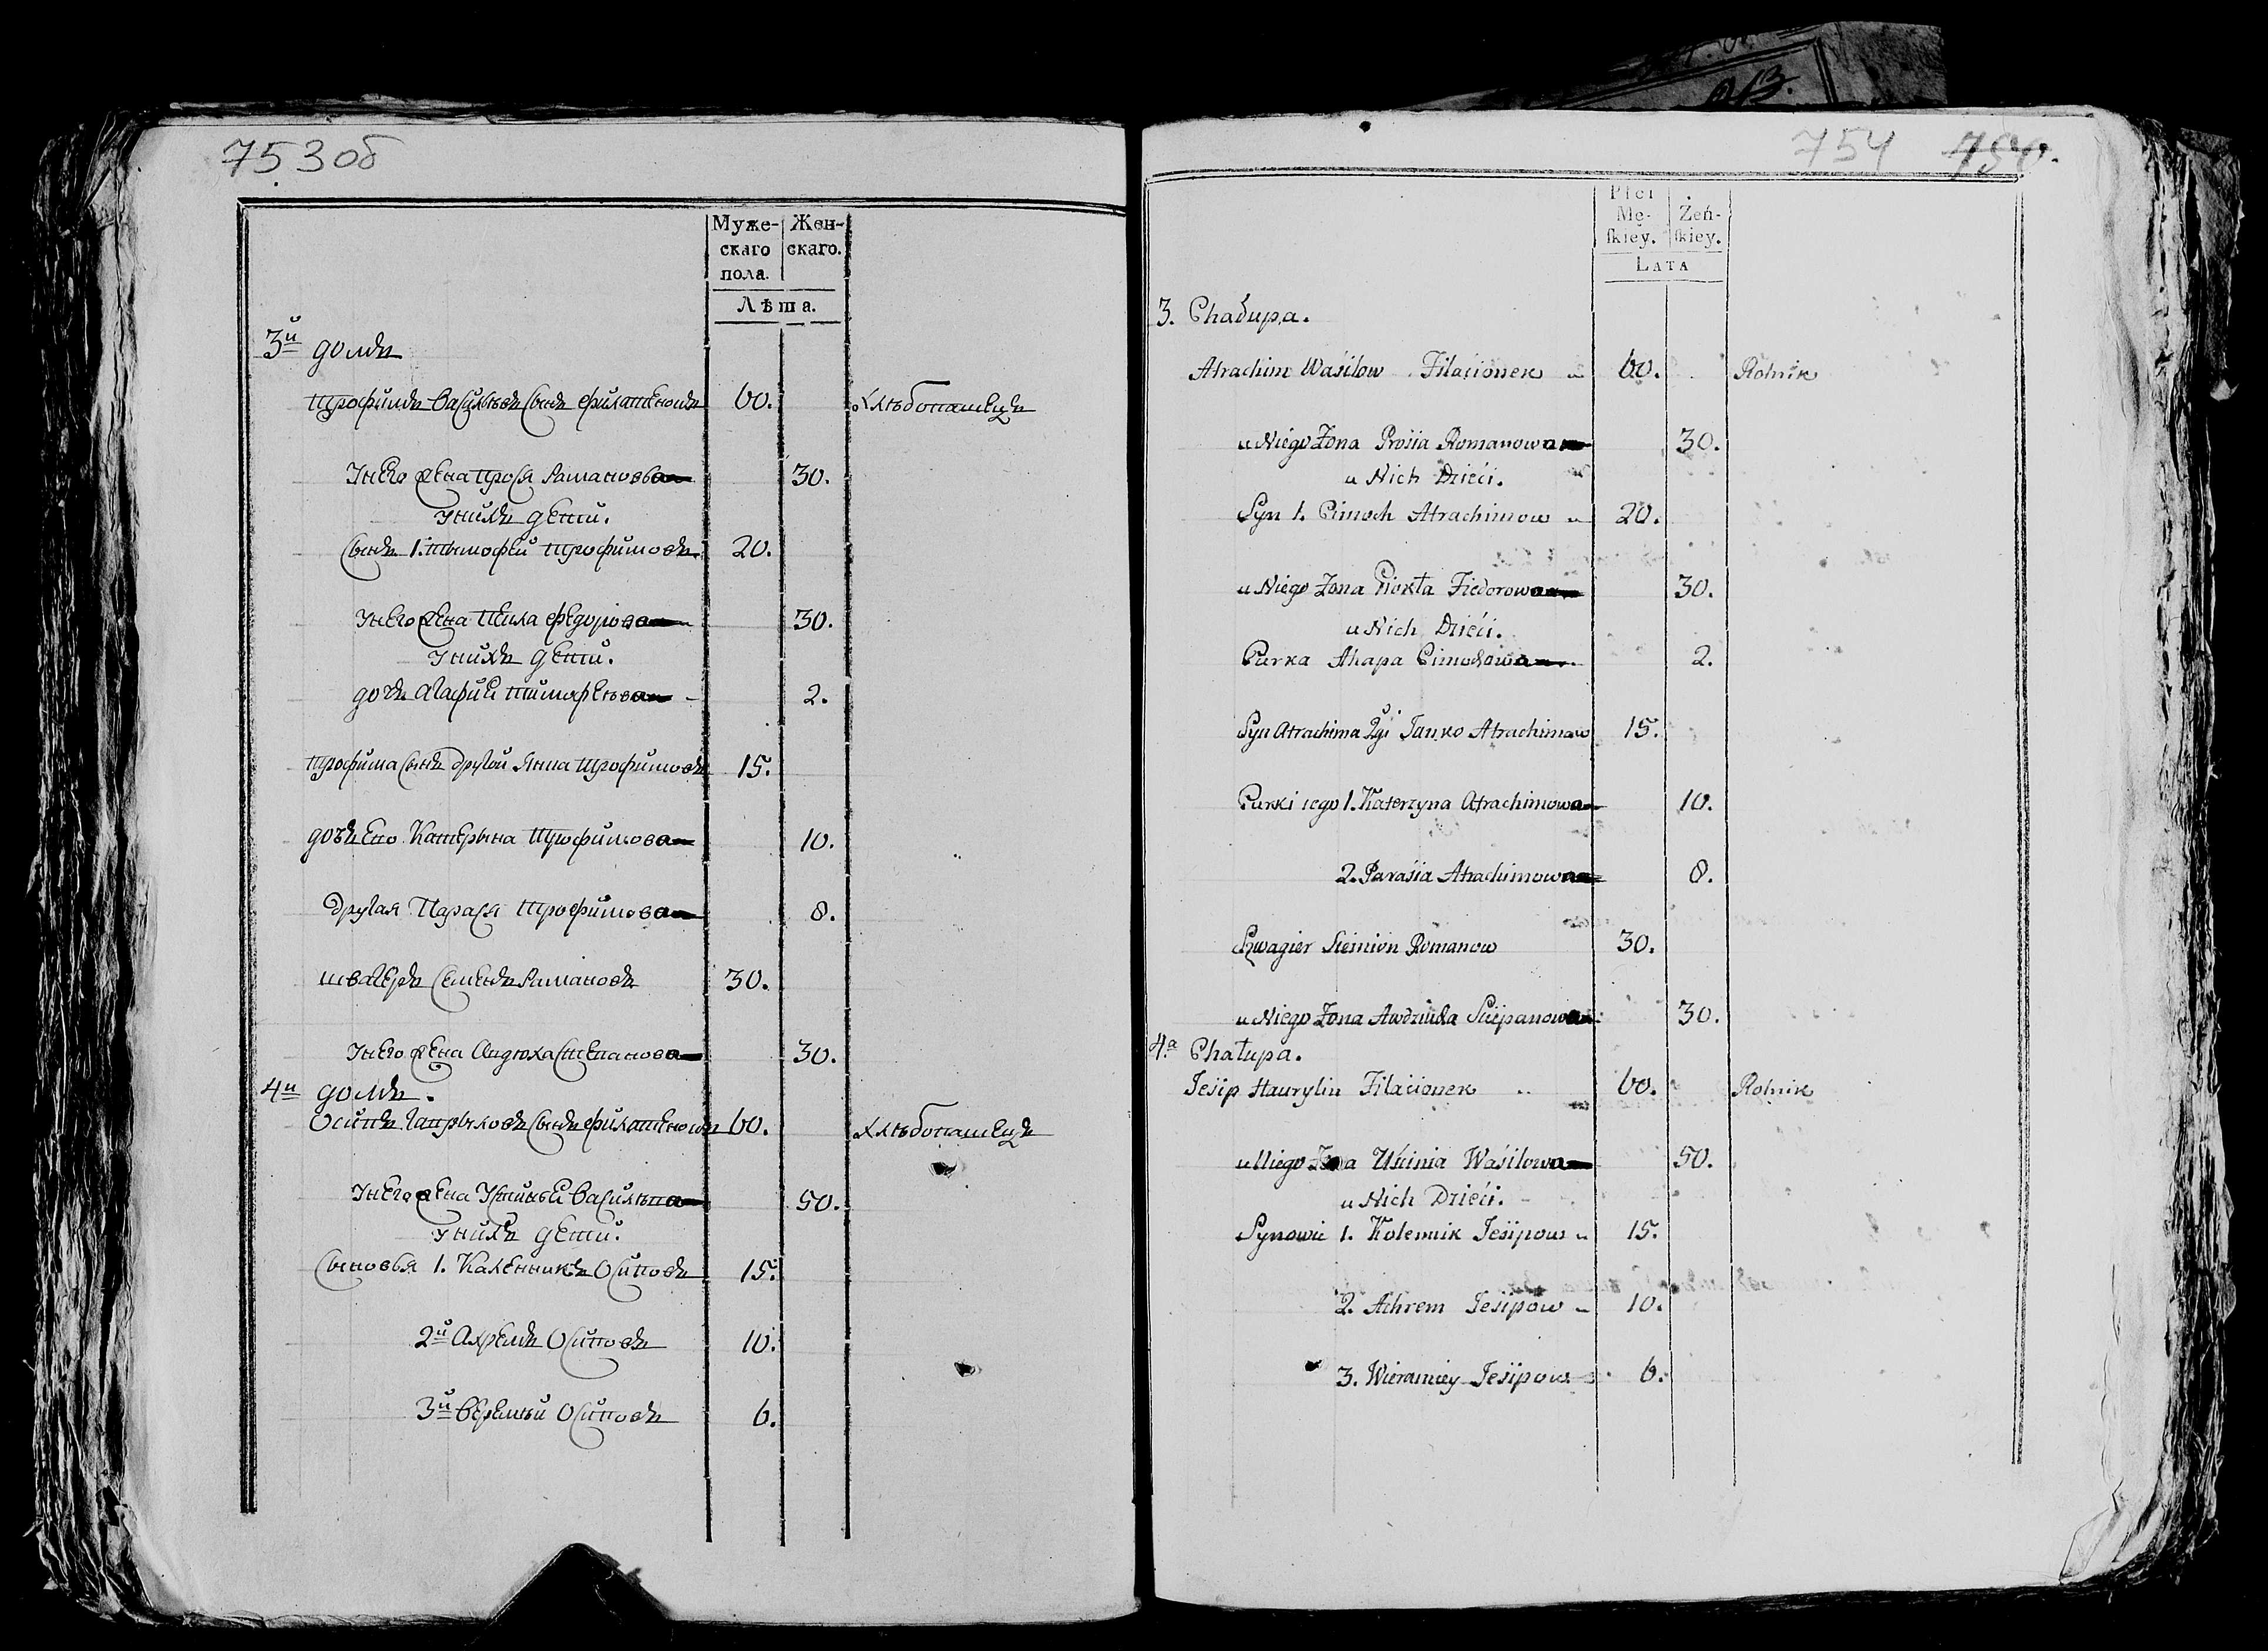 753об
Муже-
скаго
пола.
Жен-
скаго.
Лѣта.
3й домъ
Трофимъ Васильевъ сынъ Филатенокъ 60. Хлѣбопашецъ
У него жена Прося Раманова 30.
У нихъ дети.
Сынъ 1. Тымофей Трофимовъ 20.
У него жена Текла Федорова 30.
У нихъ дети.
дочь Агафия Тимофеева 2.
Трофима сынъ другой Янка Трофимовъ 15.
дочь его Катерына Трофимова 10.
Другая Парася Трофимова 8.
Швагеръ Семенъ Рамановъ 30.
У него жена Авдюха Степанова 30.
4й домъ.
Осипъ Гаврыловъ сынъ Филатенокъ 60. Хлѣбопашецъ
У него жена Устинья Васильева 50.
У нихъ дети.
Сыновья 1. Каленникъ Осиповъ 15.
2й Ахремъ Осиповъ 10.
3й Веремей Осиповъ 6.
754
Płci
Mę-
ſkiey.
Żeń-
ſkiey.
LATA
3. Chałupa.
Atrachim Waśilow Filacionek 60. Rolnik
u Niego Żona Prosia Romanowa 30.
u Nich Dzieći.
Syn 1. Cimoch Atrachimow 20.
u Niego Żona Ciokła Fiedorowa 30.
u Nich Dzieći.
Curka Ahapa Cimochowa 2.
Syn Atrachima 2gi Janko Atrachimow 15.
Curki iego 1. Katerzyna Atrachimowa 10.
2. Paraśia Atrachimowa 8.
Szwagier Siemion Romanow 30.
u Niego Żona Awdziucha Sciepanowa 30.
4.a Chałupa.
Jesip Haurylin Filacionek 60. Rolnik
u Niego Żona Uscinia Waśilowa 50.
u Nich Dzieći.
Synowie 1. Kolennik Jesipow 15.
2. Achrem Jesipow 10.
3. Wieramiey Jesipow 6.